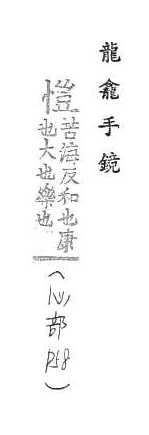 龍龕手鏡
愷苦海反和也康
也大也樂也
(心部
p58)